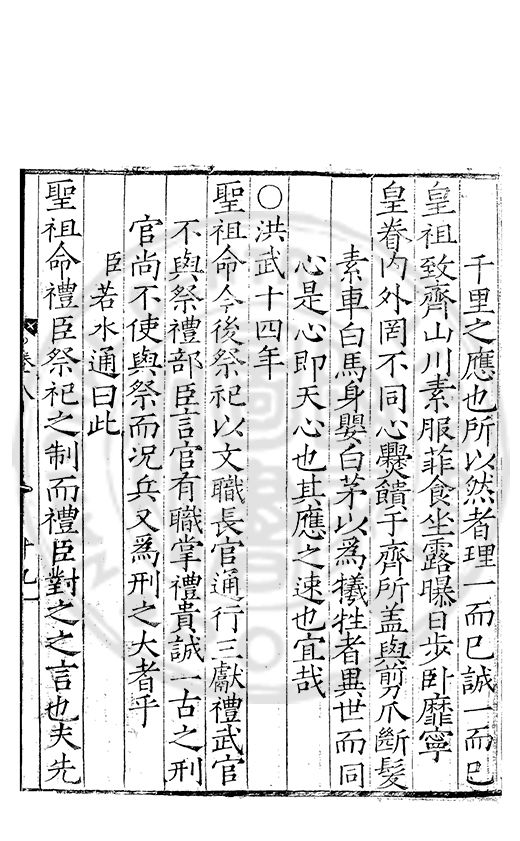 千里之應也所以然者理一而已誠一而已
皇祖致齊山川素服菲食坐露曝日步卧靡寧
皇眷内外罔不同心爨饋于齊所盖與剪爪斷髮
素車白馬身嬰白茅以爲犧牲者異世而同
心是心即天心也其應之速也宜哉
○洪武十四年
聖祖命今後祭祀以文職長官通行三獻禮武官
不與祭禮部臣言官有職掌禮貴誠一古之刑
官尚不使與祭而况兵又爲刑之大者乎
臣若水通曰此
聖祖命禮臣祭祀之制而禮臣對之之言也夫先
卷八
十九